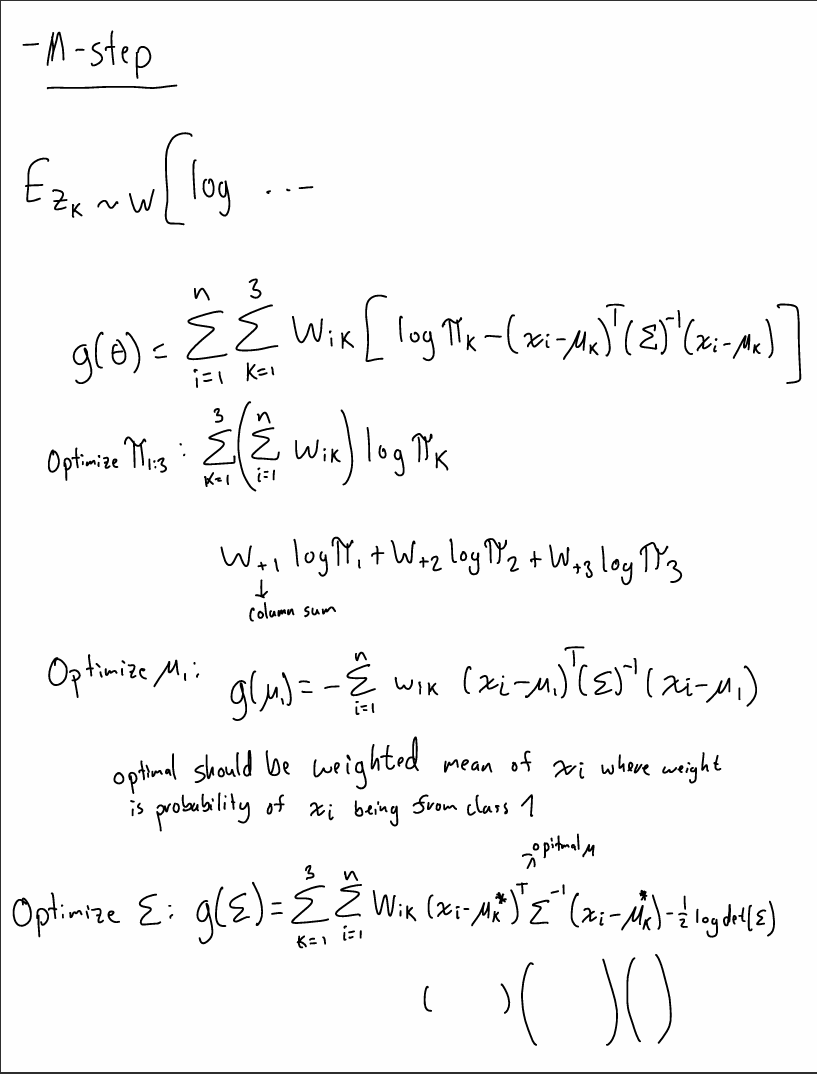 -M-step
E_{z_K ~ W}[log ...
g(θ) = Σ_{i=1}^{n} Σ_{K=1}^{3} W_{iK} [ log π_K - (x_i - μ_K)^T (Σ)^{-1} (x_i - μ_K) ]
Optimize π_{1:3} : Σ_{K=1}^{3} ( Σ_{i=1}^{n} W_{iK} ) log π_K
W_{+1} log π_1 + W_{+2} log π_2 + W_{+3} log π_3
↓
column sum
Optimize μ_1: g(μ_1) = - Σ_{i=1}^{n} w_{1K} (x_i - μ_1)^T (Σ)^{-1} (x_i - μ_1)
optimal should be weighted mean of x_i where weight
is probability of x_i being from class 1
opitmal μ
Optimize Σ: g(Σ) = Σ_{K=1}^{3} Σ_{i=1}^{n} W_{iK} (x_i - μ_K^*)^T Σ^{-1} (x_i - μ_K^*) - 1/2 log det(Σ)
( ) ( ) ( )